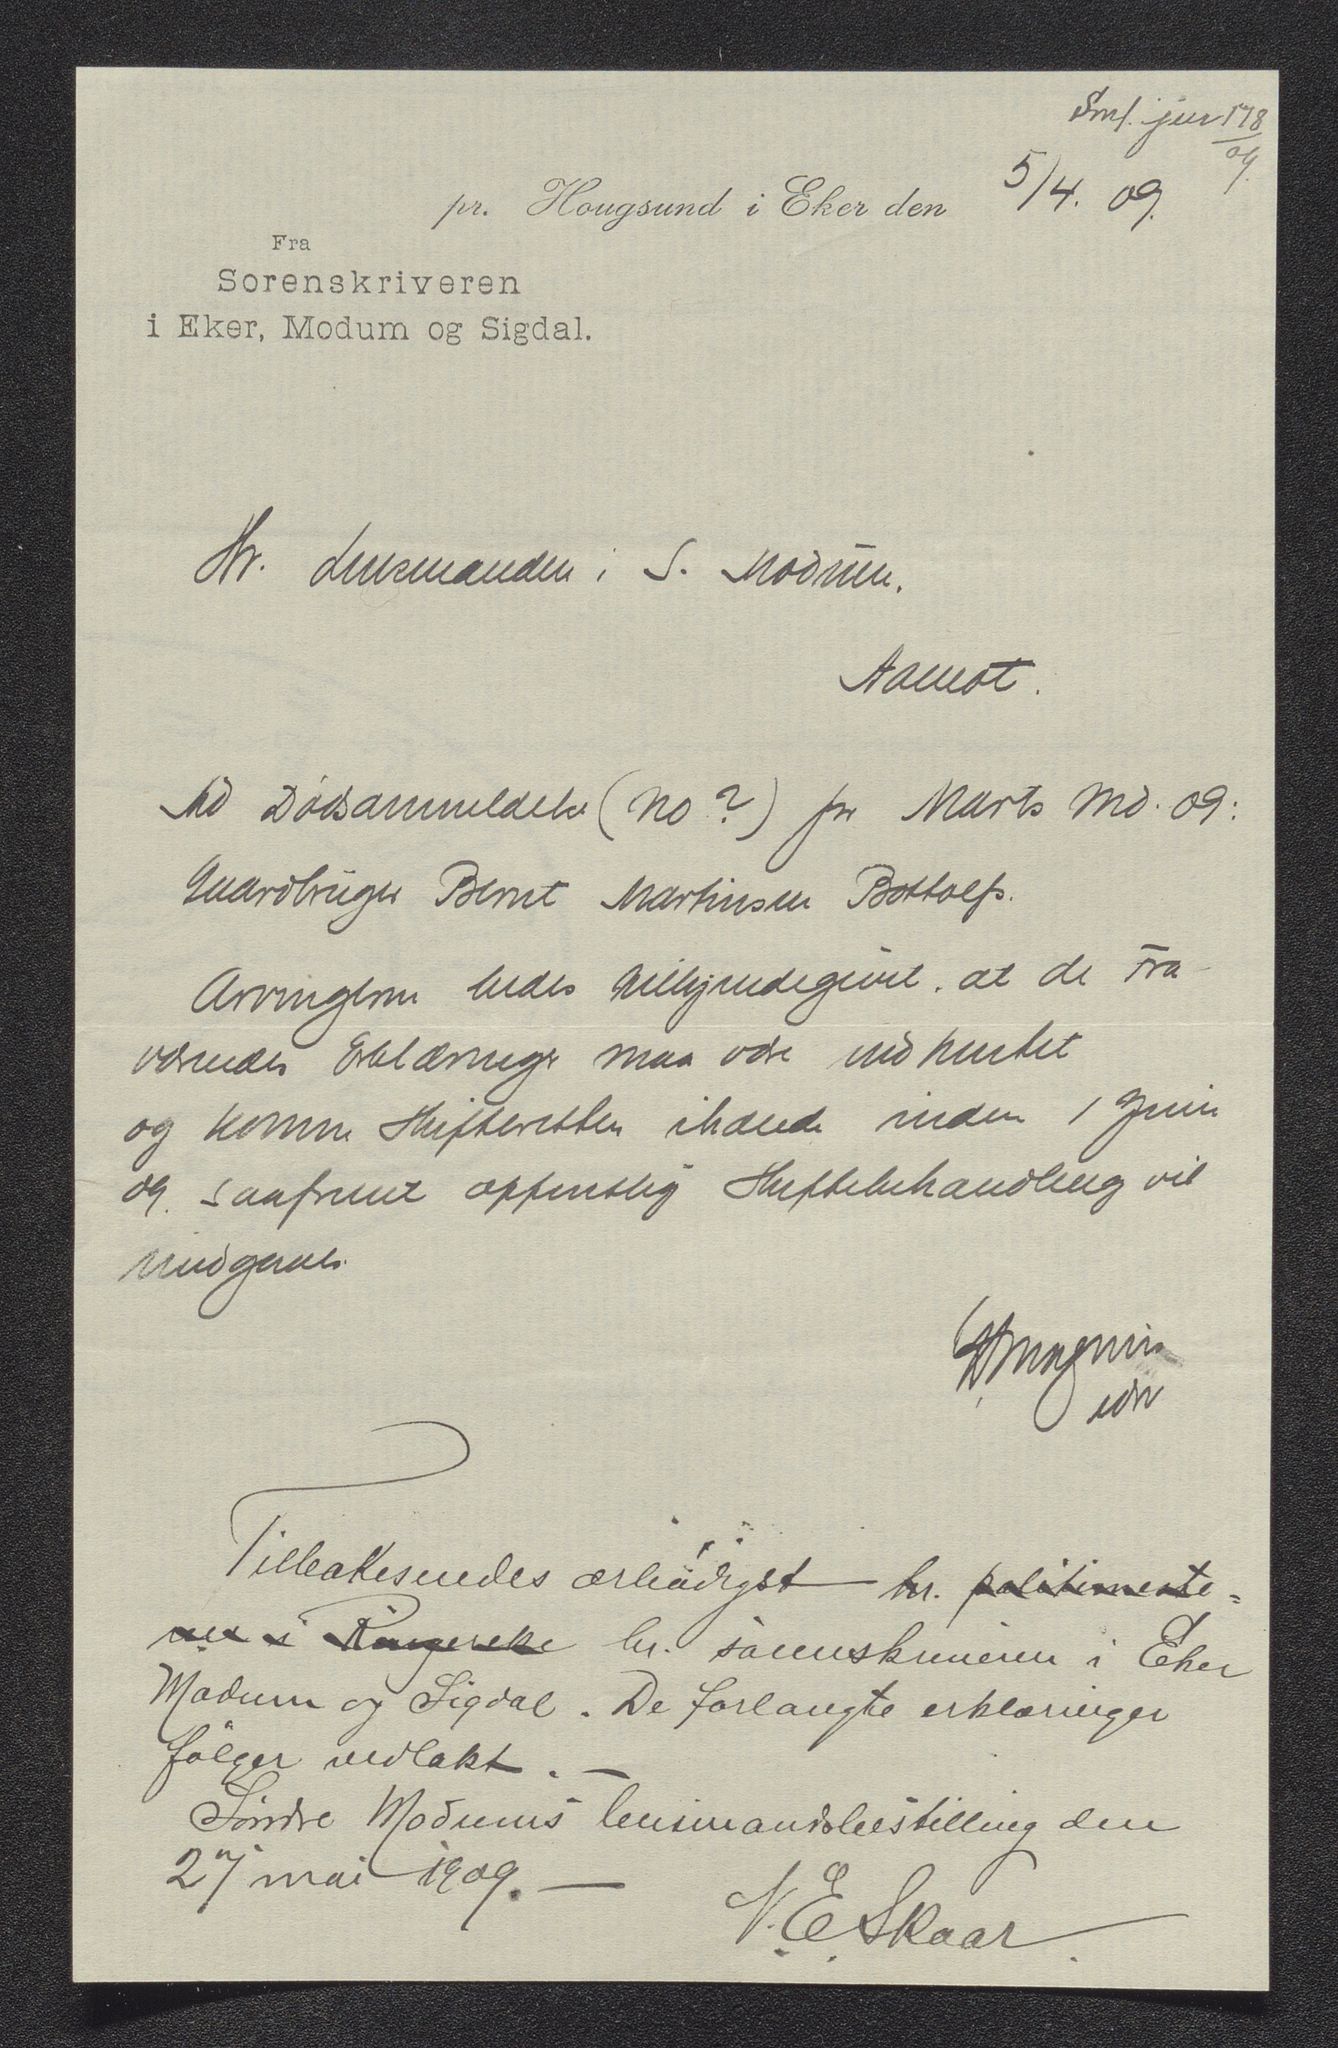 Smf. jur 178/09.
pr. Hougsund i Eker den 5/4. 09.
Fra
Sorenskriveren
i Eker, Modum og Sigdal.
Hr. Lensmanden i S. Modum.
Aamot.
Ad Dødsanmeldelse (No ?) for Marts Md. 09:
Gaardbruger Bernt Martinsen Bottolfs.
Arvingerne bedes tilkjendegivet, at de fra-
værendes Erklæringer maa være indhentet
og komme Skifteretten ihænde inden 1 Juni
09. saafremt offentlig Skiftebehandling vil
undgaaes.
Tilbakesendes ærbødigst hr. politimeste-
ren i Ringerike hr. sorenskriveren i Eker
Modum og Sigdal. De forlangte erklæringer
følger vedlakt. —
Søndre Modums lensmandsbestilling den
27 mai 1909. —
N. E. Skaar